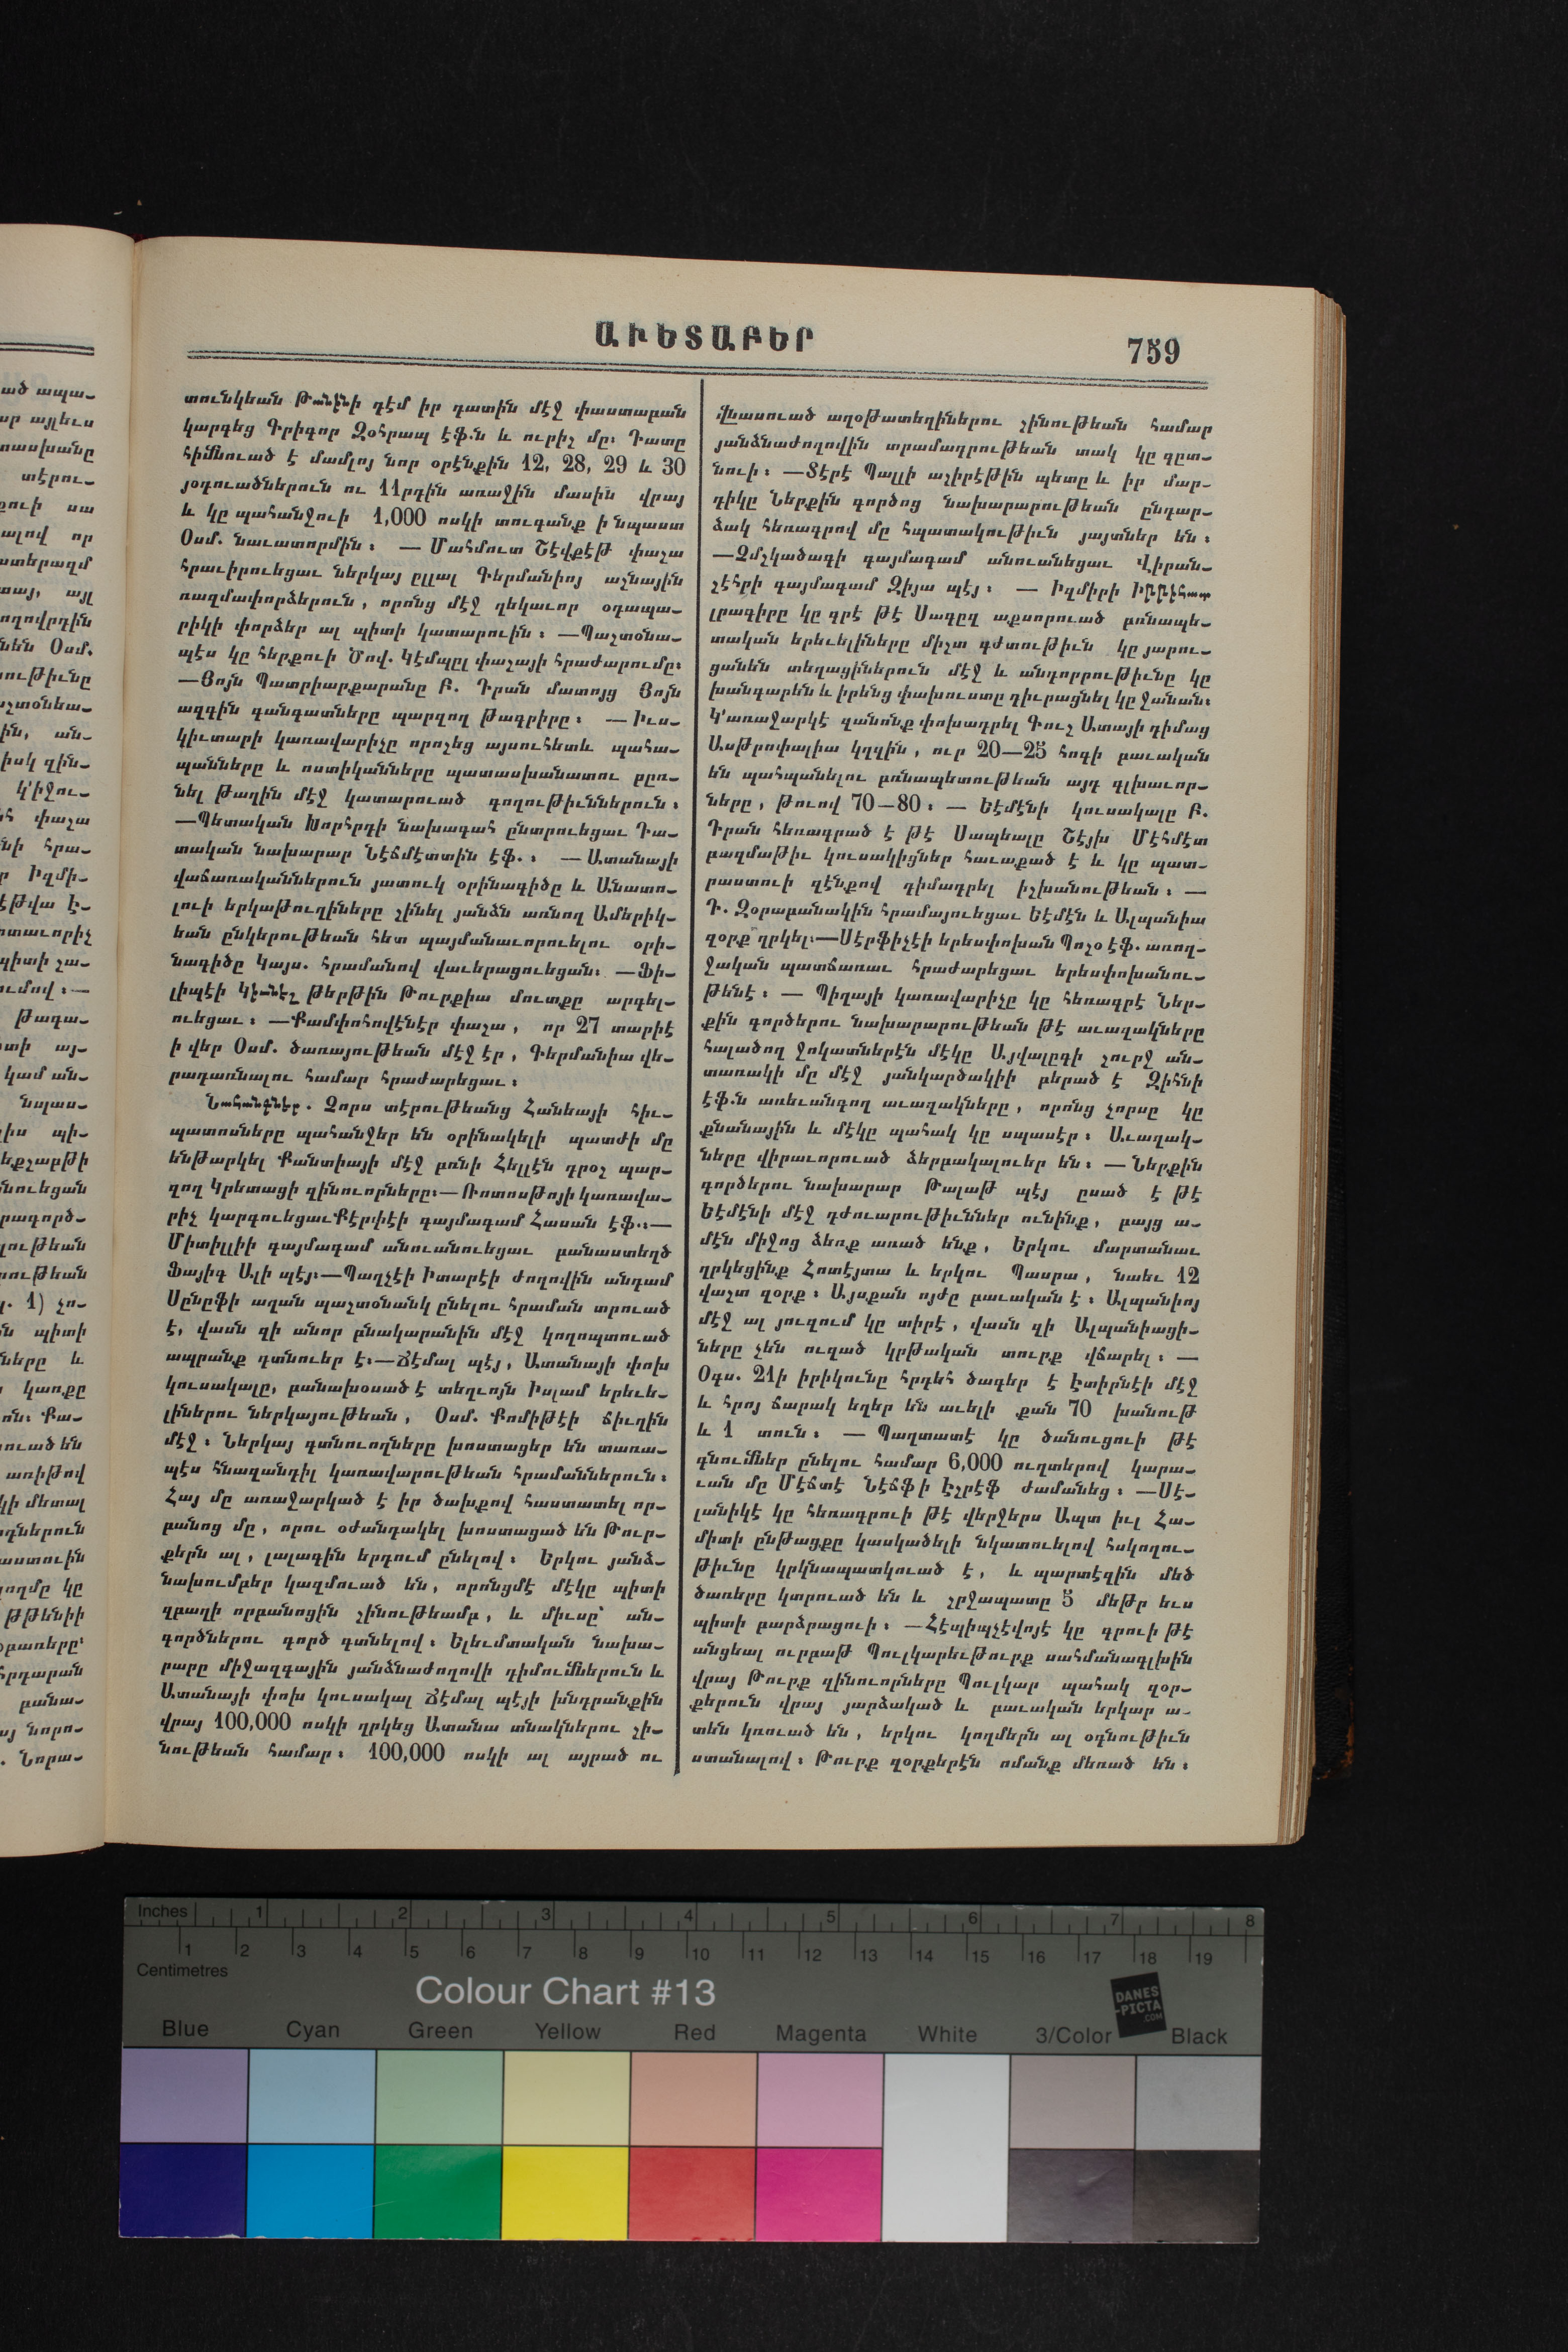 ԱՒԵՏԱԲԵՐ
759
տունկեան Թանինի դէմ իր դատին մէջ փաստաբան
կարգեց Գրիգոր Զօհրապ էֆ.ն և ուրիշ մը։ Դատը
հիմնուած է մամլոյ նոր օրէնքին 12, 28, 29 և 30
յօդուածներուն ու 11րդին առաջին մասին վրայ
և կը պահանջուի 1,000 ոսկի տուգանք ի նպաստ
Օսմ. նաւատորմին։ — Մահմուտ Շէվքէթ փաշա
հրաւիրուեցաւ ներկայ ըլլալ Գերմանիոյ աշնային
ռազմափորձերուն, որոնց մէջ ղեկաւոր օդապա-
րիկի փորձեր ալ պիտի կատարուին։ —Պաշտօնա-
պէս կը հերքուի Ծով. Կէմպըլ փաշայի հրաժարումը։
—Յոյն Պատրիարքարանը Բ. Դրան մատոյց Յոյն
ազգին գանգատները պարզող թագրիրը։ — Իւս-
կիւտարի կառավարիչը որոշեց այսուհետև պահա-
պանները և ոստիկանները պատասխանատու բըռ-
նել թաղին մէջ կատարուած գողութիւններուն։
—Պետական Խորհրդի նախագահ ընտրուեցաւ Դա-
տական նախարար Նէճմէտտին էֆ.։ — Ատանայի
վաճառականներուն յատուկ օրինագիծը և Անատո-
լուի երկաթուղիները շինել յանձն առնող Ամերիկ-
եան ընկերութեան հետ պայմանաւորուելու օրի-
նագիծը Կայս. հրամանով վաւերացուեցան։ —Ֆի-
լիպէի Կիւնէշ թերթին Թուրքիա մուտքը արգել-
ուեցաւ։ —Քամփոհովէնէր փաշա, որ 27 տարիէ
ի վեր Օսմ. ծառայութեան մէջ էր, Գերմանիա վե-
րադառնալու համար հրաժարեցաւ։
Նահանգներ. Չորս տէրութեանց Հանեայի հիւ-
պատոսները պահանջեր են օրինակելի պատժի մը
ենթարկել Քանտիայի մէջ բռնի Հելլէն դրօշ պար-
զող Կրետացի զինուորները։—Ռոտոսթոյի կառավա-
րիչ կարգուեցաւ Քէրփէի գայմագամ Հասան էֆ.։—
Միտիլլիի գայմագամ անուանուեցաւ բանաստեղծ
Ֆայիգ Ալի պէյ։—Պաղչէի Իտարէի ժողովին անդամ
Սընըֆի աղան պաշտօնանկ ընելու հրաման տրուած
է, վասն զի անոր բնակարանին մէջ կողոպտուած
ապրանք գտնուեր է։—Ճէմալ պէյ, Ատանայի փոխ
կուսակալը, բանախօսած է տեղւոյն Իսլամ երեւե-
լիներու ներկայութեան, Օսմ. Քոմիթէի ճիւղին
մէջ։ Ներկայ գտնուողները խոստացեր են տառա-
պէս հնազանդիլ կառավարութեան հրամաններուն։
Հայ մը առաջարկած է իր ծախքով հաստատել որ-
բանոց մը, որու օժանդակել խոստացած են Թուր-
քերն ալ, լալագին երդում ընելով։ Երկու յանձ-
նախումբեր կազմուած են, որոնցմէ մէկը պիտի
զբաղի որբանոցին շինութեամբ, և միւսը՝ ան-
գործներու գործ գտնելով։ Ելեւմտական նախա-
րարը միջազգային յանձնաժողովի դիմումներուն և
Ատանայի փոխ կուսակալ Ճէմալ պէյի խնդրանքին
վրայ 100,000 ոսկի ղրկեց Ատանա տնակներու շի-
նութեան համար։ 100,000 ոսկի ալ այրած ու
վնասուած աղօթատեղիներու շինութեան համար
յանձնաժողովին տրամադրութեան տակ կը գըտ-
նուի։ —Տէրէ Պալլի աշիրէթին պետը և իր մար-
դիկը Ներքին գործոց նախարարութեան ընդար-
ձակ հեռագրով մը հպատակութիւն յայտներ են։
—Չմշկածագի գայմագամ անուանեցաւ Վիրան-
շէհրի գայմագամ Զիյա պէյ։ — Իզմիրի
լրագիրը կը գրէ թէ Սագըզ աքսորուած բռնապե-
տական երեւելիները միշտ գժտութիւն կը յարու-
ցանեն տեղացիներուն մէջ և անդորրութիւնը կը
խանգարեն և իրենց փախուստը դիւրացնել կը ջանան։
Կ՚առաջարկէ զանոնք փոխադրել Գուշ Ատայի դիմաց
Ասթրոփալիա կղզին, ուր 20—25 հոգի բաւական
են պահպանելու բռնապետութեան այդ գլխաւոր-
ները, թուով 70—80։ — Եէմէնի կուսակալը Բ.
Դրան հեռագրած է թէ Սապեալը Շէյխ Մէհմէտ
բազմաթիւ կուսակիցներ հաւաքած է և կը պատ-
րաստուի զէնքով դիմադրել իշխանութեան։ —
Դ. Զօրաբանակին հրամայուեցաւ Եէմէն և Ալպանիա
զօրք ղրկել։—Սէրֆիչէի երեսփոխան Պոշօ էֆ. առող-
ջական պատճառաւ հրաժարեցաւ երեսփոխանու-
թենէ։ — Պիղայի կառավարիչը կը հեռագրէ Ներ-
քին գործերու նախարարութեան թէ աւազակները
հալածող ջոկատներէն մէկը Այվալըգի շուրջ ան-
տառակի մը մէջ յանկարծակիի բերած է Զիհնի
էֆ.ն առեւանգող աւազակները, որոնց չորսը կը
քնանային և մէկը պահակ կը սպասէր։ Աւազակ-
ները վիրաւորուած ձերբակալուեր են։ — Ներքին
գործերու նախարար Թալաթ պէյ ըսած է թէ
Եէմէնի մէջ դժուարութիւններ ունինք, բայց ա-
մէն միջոց ձեռք առած ենք, Երկու մարտանաւ
ղրկեցինք Հոտէյտա և երկու Պասրա, նաեւ 12
վաշտ զօրք։ Այսքան ոյժը բաւական է։ Ալպանիոյ
մէջ ալ յուզում կը տիրէ, վասն զի Ալպանիացի-
ները չեն ուզած կրթական տուրք վճարել։ —
Օգս. 21ի իրիկունը հրդեհ ծագեր է Էտիրնէի մէջ
և հրոյ ճարակ եղեր են աւելի քան 70 խանութ
և 1 տուն։ — Պաղտատէ կը ծանուցուի թէ
գնումներ ընելու համար 6,000 ուղտերով կարա-
ւան մը Մէճտէ Նէճֆի Էշրէֆ ժամանեց։ —Սէ-
լանիկէ կը հեռագրուի թէ վերջերս Ապտ իւլ Հա-
միտի ընթացքը կասկածելի նկատուելով հսկողու-
թիւնը կրկնապատկուած է, և պարտէզին մեծ
ծառերը կտրուած են և շրջապատը 5 մեթր եւս
պիտի բարձրացուի։ —Հէպիպչէվոյէ կը գրուի թէ
անցեալ ուրբաթ ՊուլկարեւԹուրք սահմանագլխին
վրայ Թուրք զինուորները Պուլկար պահակ զօր-
քերուն վրայ յարձակած և բաւական երկար ա-
տեն կռուած են, երկու կողմերն ալ օգնութիւն
ստանալով։ Թուրք զօրքերէն ոմանք մեռած են։
Inches 1 2 3 4 5 6 7 8
1 2 3 4 5 6 7 8 9 10 11 12 13 14 15 16 17 18 19
Centimetres
Colour Chart #13
DANES
-PICTA
.COM
Blue Cyan Green Yellow Red Magenta White 3/Color Black